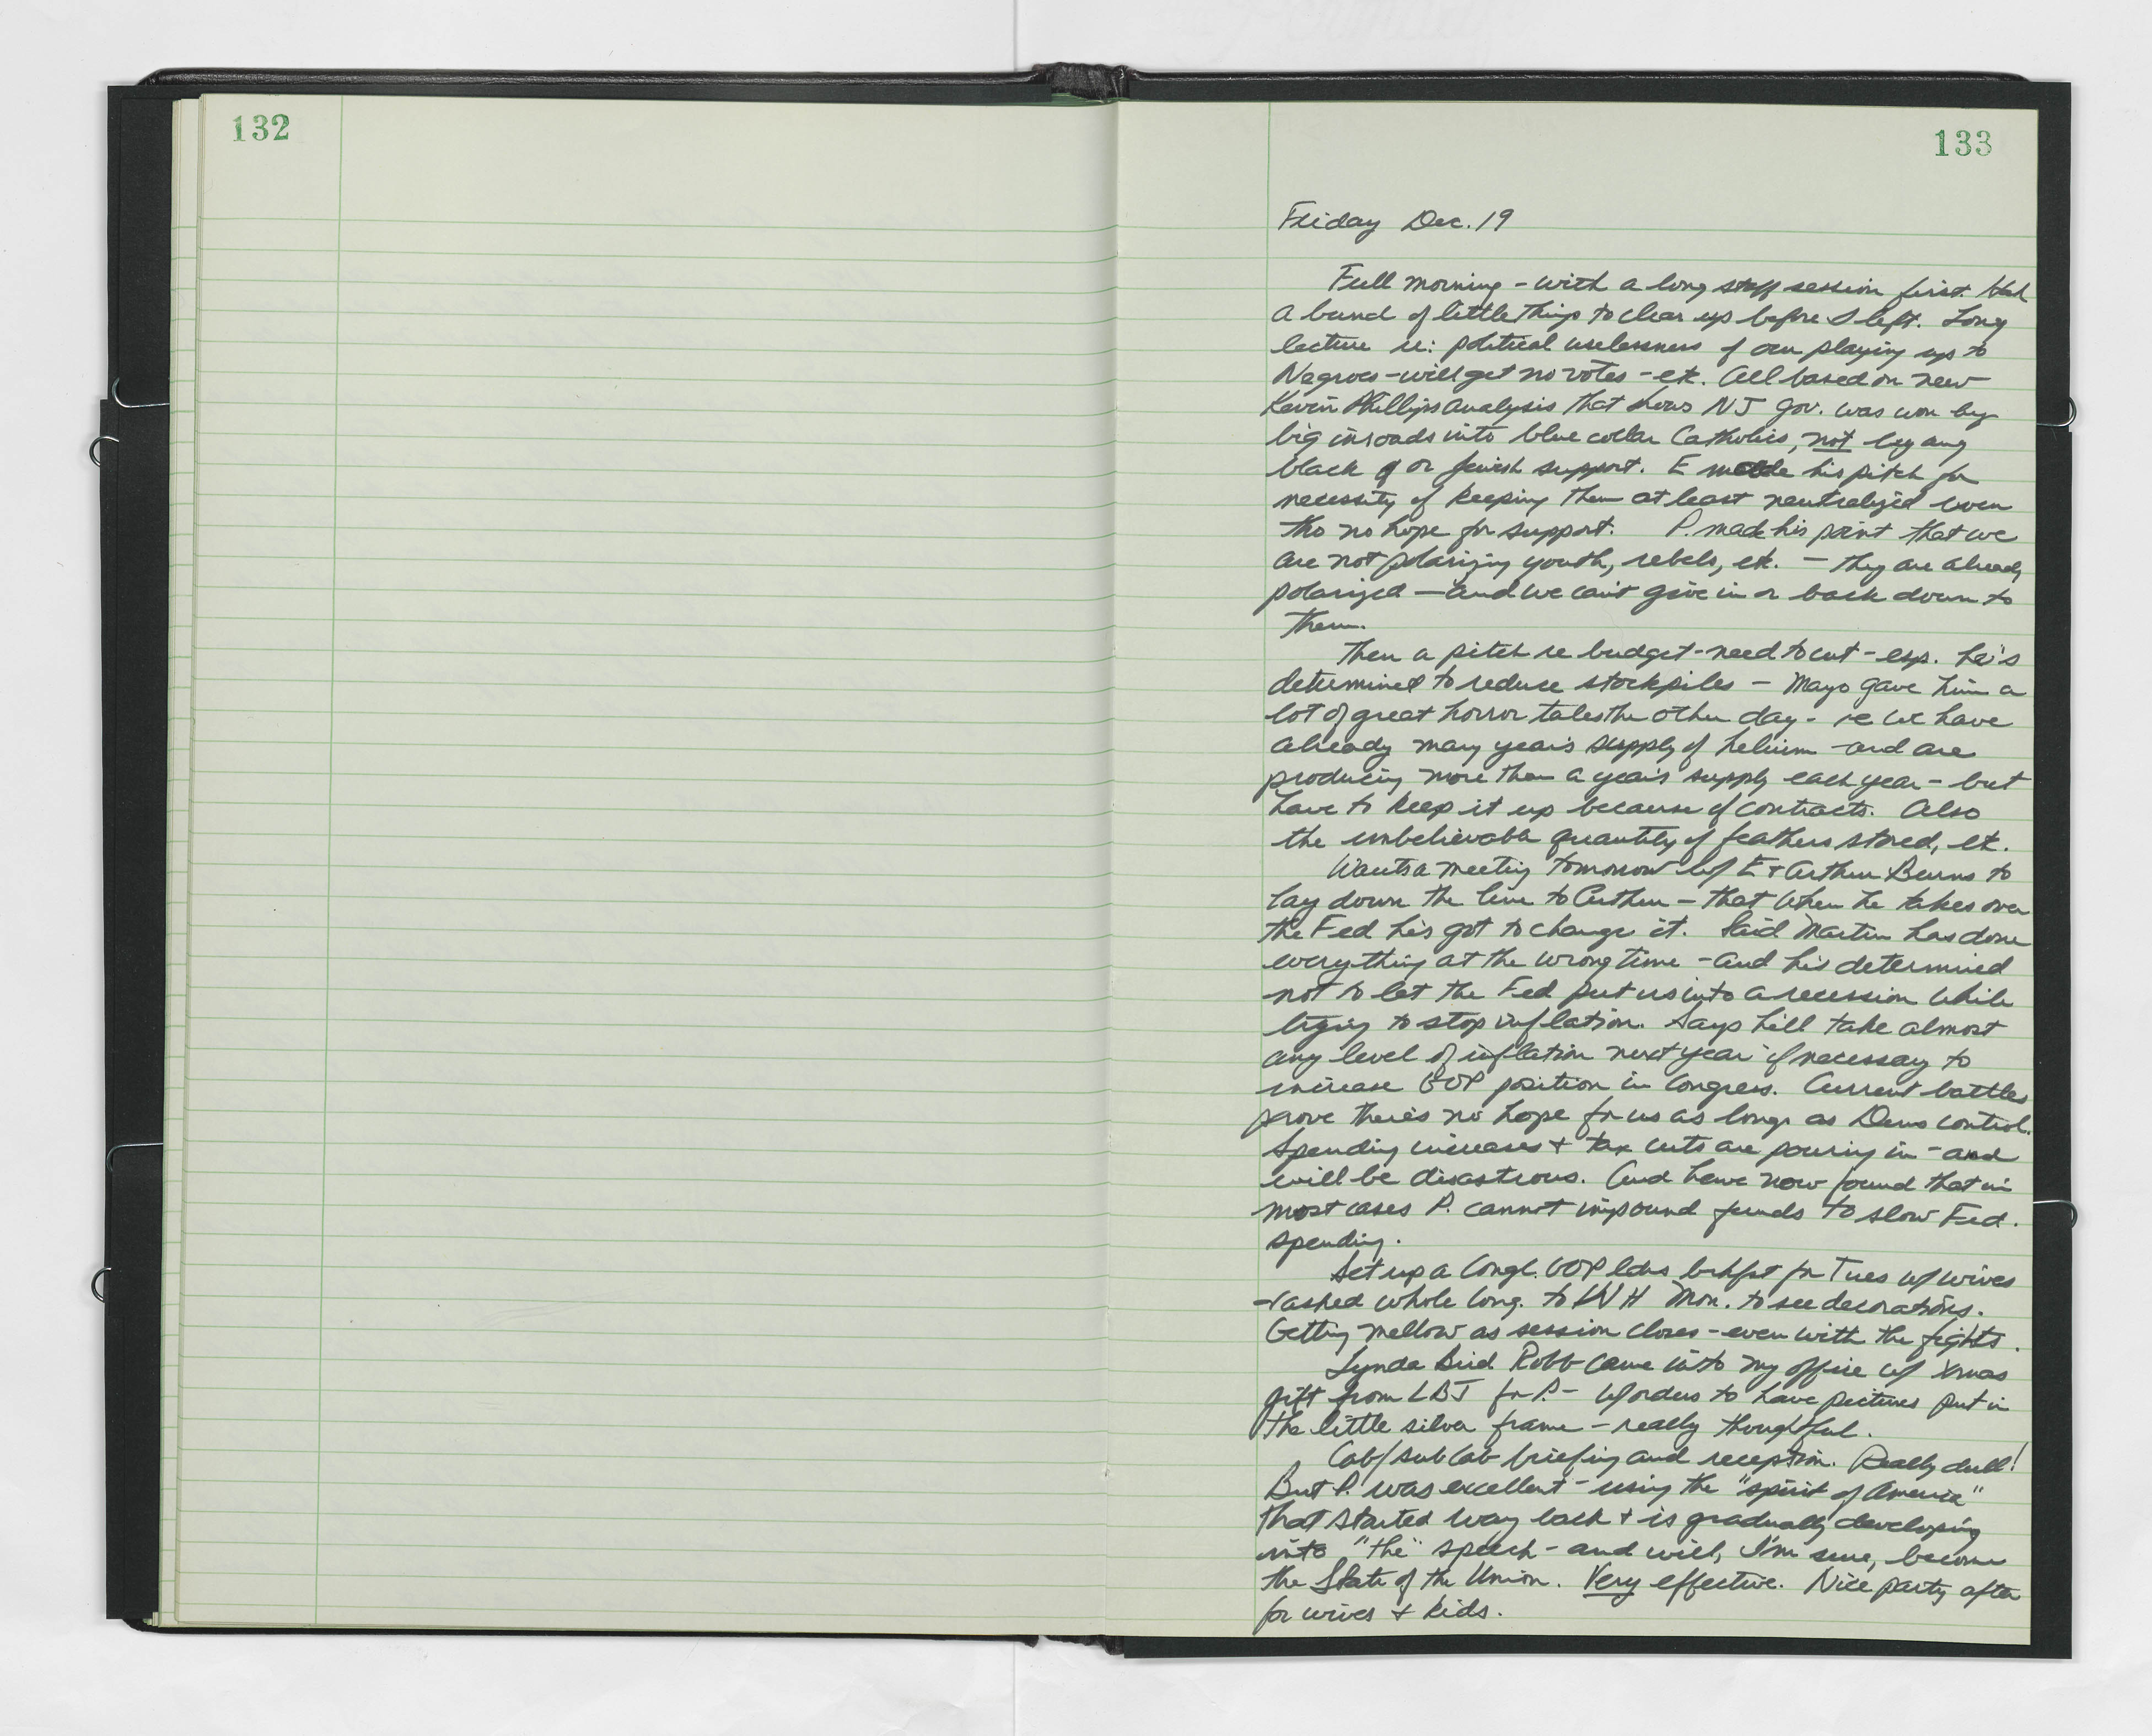 132
133
Friday Dec. 19
Full morning - with a long staff session first. Had
a bunch of little things to clear up before I left. Long
lecture re: political uselessness of our playing up to
Negroes - will get no votes - etc. All based on new
Kevin Phillips analysis that shows NJ gov. was won by
big inroads into blue collar Catholics, not by any
black or Jewish support. E made his pitch for
necessity of keeping them at least neutralized even
tho no hope for support. P. made his point that we
are not polarizing youth, rebels, etc. - they are already
polarized - and we can't give in or back down to
them.
Then a pitch re budget - need to cut - esp. he's
determined to reduce stockpiles - Mayo gave him a
lot of great horror tales the other day - ie we have
already many years supply of helium - and are
producing more than a year's supply each year - but
have to keep it up because of contracts. Also
the unbelievable quantity of feathers stored, etc.
Wants a meeting tomorrow w/ E + Arthur Burns to
lay down the line to Arthur - that when he takes over
the Fed he's got to change it. Said Martin has done
everything at the wrong time - and he's determined
not to let the Fed put us into a recession while
trying to stop inflation. Says he'll take almost
any level of inflation next year if necessary to
increase GOP position in Congress. Current battles
prove there's no hope for us as long as Dems control.
Spending increases + tax cuts are pouring in - and
will be disastrous. And have now found that in
most cases P. cannot impound funds to slow Fed.
spending.
Set up a Congl. GOP ldrs brkfst for Tues w/ wives
- + asked whole Cong. to WH Mon. to see decorations.
Getting mellow as session closes - even with the fights.
Lynda Bird Robb came into my office w/ Xmas
gift from LBJ for P. - w/ orders to have pictures put in
the little silver frame - really thoughtful.
Cab/sub Cab briefing and reception. Really dull!
But P. was excellent - using the "spirit of America"
that started way back + is gradually developing
into "the" speech - and will, I'm sure, become
the State of the Union. Very effective. Nice party after
for wives + kids.